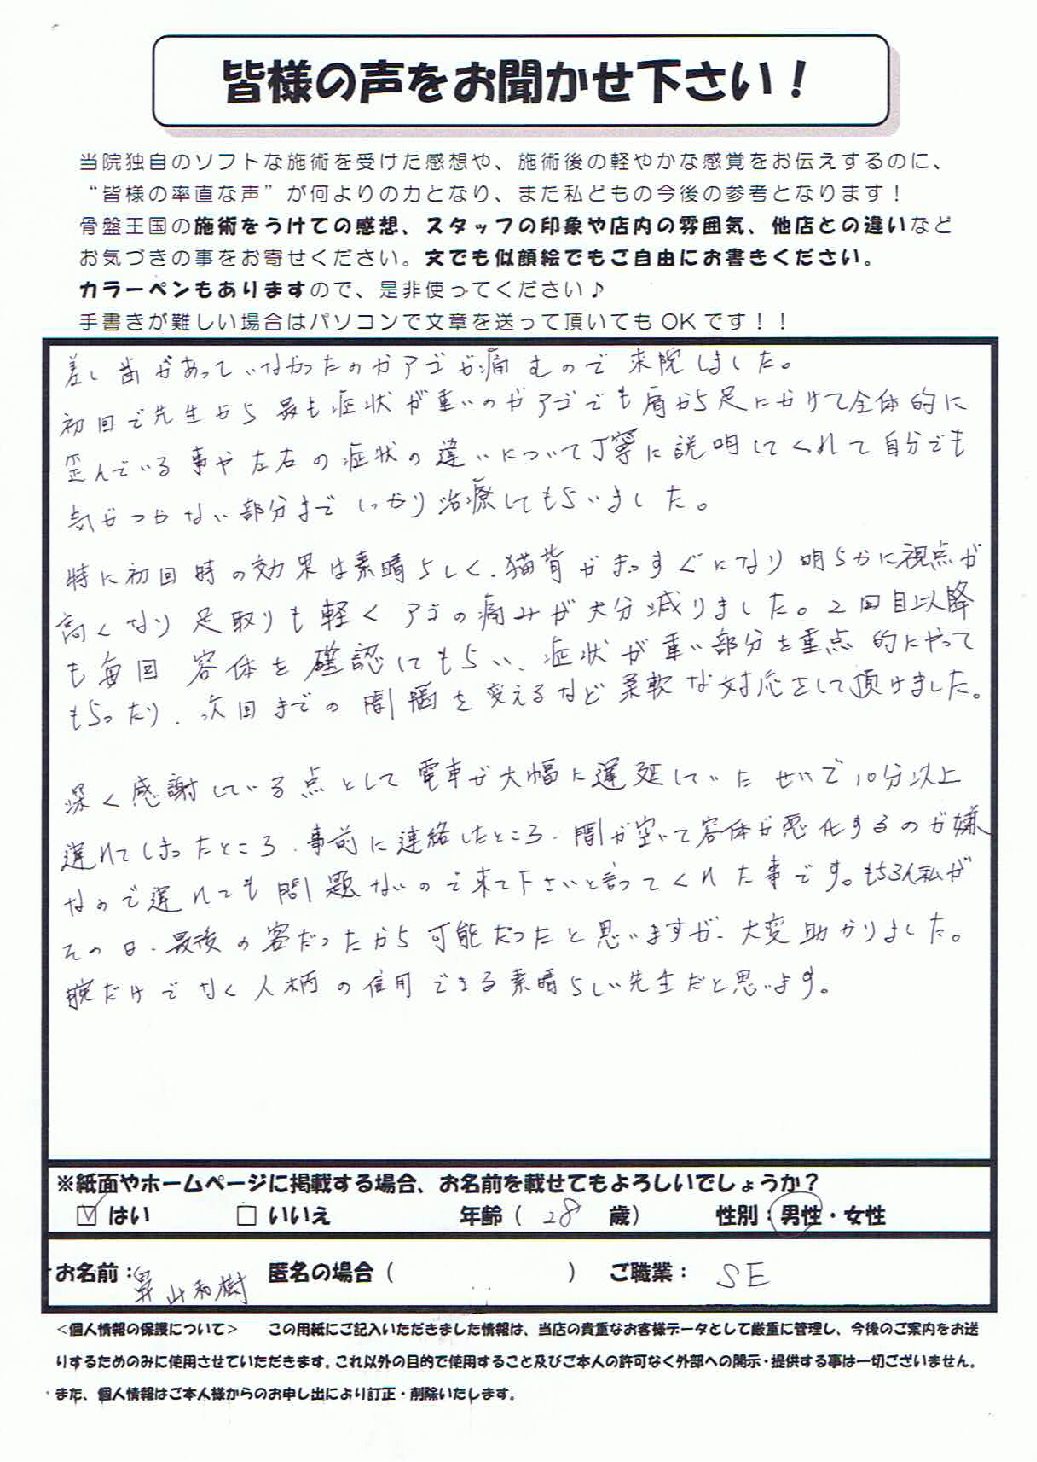 皆様の声をお聞かせ下さい！
当院独自のソフトな施術を受けた感想や、施術後の軽やかな感覚をお伝えするのに、
“皆様の率直な声”が何よりの力となり、また私どもの今後の参考となります！
骨盤王国の施術をうけての感想、スタッフの印象や店内の雰囲気、他店との違いなど
お気づきの事をお寄せください。文でも似顔絵でもご自由にお書きください。
カラーペンもありますので、是非使ってください♪
手書きが難しい場合はパソコンで文章を送って頂いてもOKです！！
差し歯があっていなかったのかアゴが痛むので来院しました。
初回で先生から最も症状が重いのがアゴでも肩から足にかけて全体的に
歪んでいる事や左右の症状の違いについて丁寧に説明してくれて自分でも
気がつかない部分までしっかり治療してもらいました。
特に初回時の効果は素晴らしく、猫背がまっすぐになり明らかに視点が
高くなり足取りも軽くアゴの痛みが大分減りました。2回目以降
も毎回容体を確認してもらい、症状が重い部分を重点的にやって
もらったり、次回までの間隔を変えるなど柔軟な対応をして頂けました。
深く感謝している点として電車が大幅に遅延していたせいで10分以上
遅れてしまったところ、事前に連絡したところ、間が空いて容体が悪化するのが嫌
なので遅れても問題ないので来て下さいと言ってくれた事です。もちろん私が
その日、最後の客だったから可能だったと思いますが、大変助かりました。
腕だけでなく人柄の信用できる素晴らしい先生だと思います。
※紙面やホームページに掲載する場合、お名前を載せてもよろしいでしょうか？
☑ はい □ いいえ 年齢（ 28 歳） 性別：男性・女性
お名前： 山和樹 匿名の場合（ ） ご職業： SE
＜個人情報の保護について＞ この用紙にご記入いただきました情報は、当店の貴重なお客様データとして厳重に管理し、今後のご案内をお送
りするためのみに使用させていただきます。これ以外の目的で使用すること及びご本人の許可なく外部への開示・提供する事は一切ございません。
また、個人情報はご本人様からのお申し出により訂正・削除いたします。